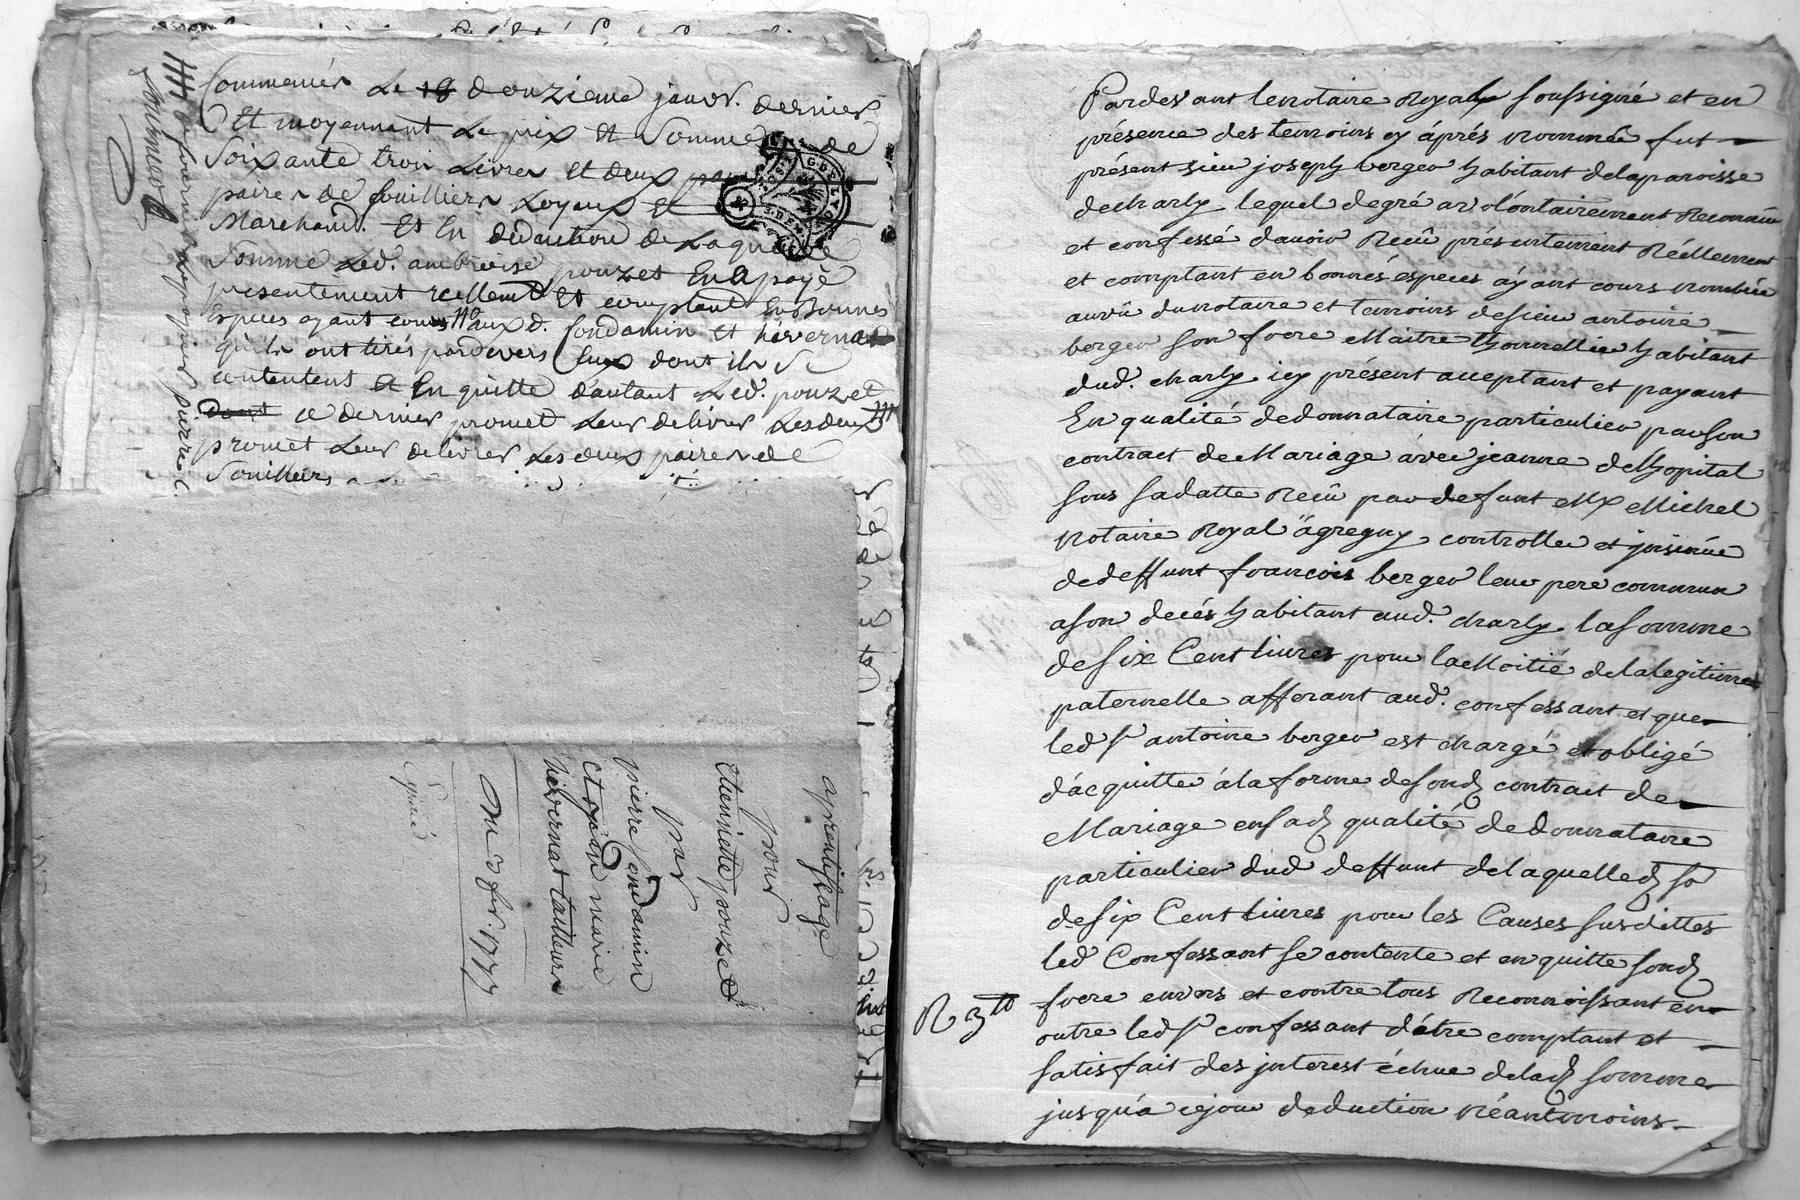 Commencér le 18 douzieme janvr. dernier
Et moyennant Le prix Et Somme de
Soixante trois Livres et deux
paires de souilliers Loyaux Et
Marchand. Et En deduction de Laquelle
Somme Led. ambroise pouzet En a payé
presentement reellemt Et comptant En Bonnes
Especes ayant cours aux d. Condamin et hivernat
qu'ils ont tirés pardevers Eux dont ils Se
contentent Et En quitte d'autant Led. pouzet
dont ce dernier promet Leur delivrer Les deux
promet Leur delivrer Les deux paires de
Souilliers
aprentissage
pour
Etiennette pouzet
par
pierre Condamin
et marie
hivernat tailleurs
Du 2 fév. 1777
Pardevant le notaire Royal soussigné et en
présence des temoins cy áprés nommés fut
présent sieur joseph berger habitant de la paroisse
de charly lequel de gré a volóntairement Reconnu
et confessé d'avoir Reçû présentement Réellement
et comptant en bonnes especes áyant cours nombrée
au vû du notaire et temoins de sieur antoine
berger son frere Maitre thonnellier habitant
dud. charly icy présent acceptant et payant
En qualité de donnataire particulier par son
contract de Mariage ávec jeanne delhopital
sous sa datte Reçû par defunt Me Michel
Notaire Royal à gregny controlle et jnsinué
de deffunt francois berger leur pere commun
a son decés habitant aud. charly la somme
de six Cent livres pour la Moitié de la legitime
paternelle afferant aud. confessant et que
led sr antoine berger est chargé et obligé
d'acquitter à la forme de sond contract de
Mariage en sad qualité de donnataire
particulier dud deffunt de laquelle d. so
de six Cent livres pour les Causes susdittes
led Confessant se contente et en quitte sond
frere envers et contre tous Reconnoissant en
outre led sr confessant d'être comptant et
satisfait des jnterest échue de lad somme
jusqu'a ce jour deduction Néantmoins